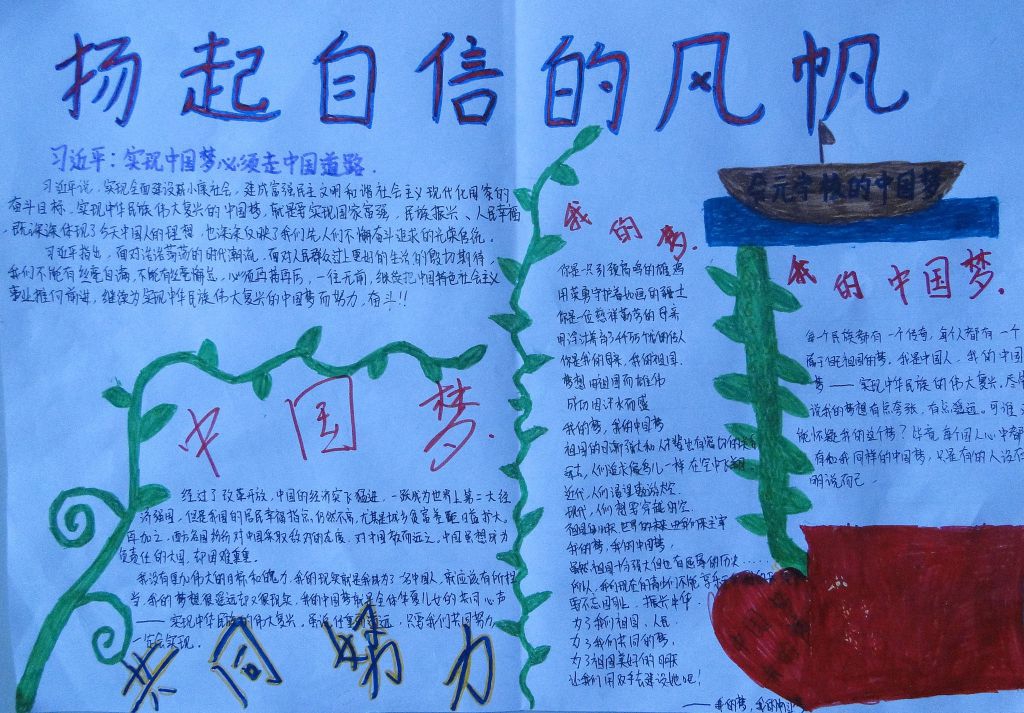 扬起自信的风帆
习近平：实现中国梦必须走中国道路.
习近平说，实现全面建设小康社会，建成富强民主文明和谐社会主义现代化国家的
奋斗目标，实现中华民族伟大复兴的中国梦，就是要实现国家富强，民族振兴、人民幸福
既深深体现了今天中国人的理想，也深深反映了我们先人们不懈奋斗追求的光荣传统。
习近平指出，面对浩浩荡荡的时代潮流，面对人民群众过上更好的生活的殷切期待，
我们不能有丝毫自满，不能有丝毫懈怠，必须再接再厉，一往无前，继续把中国特色社会主义
事业推向前进，继续为实现中华民族伟大复兴的中国梦而努力，奋斗!!
中国梦.
经过了改革开放，中国的经济突飞猛进，一跃成为世界上第二大经
济强国，但是我国的居民幸福指数仍然不高，尤其是城乡贫富差距日益扩大。
再加之，西方各国纷纷对中国采取敌对的态度，对中国敬而远之。中国想成为
负责任的大国，却困难重重。
我没有更加伟大的目标和魄力，我的现实就是我作为一名中国人，
我的梦想很遥远却又很现实，我的中国梦就是全体华夏儿女的共同心声
——实现中华民族的伟大复兴。只要我们共同努力，
一定会实现。
共同努力
我的梦.
你是一只引颈高鸣的雄鸡
用英勇守护着如画的疆土
你是一位慈祥勤劳的母亲
你是我的母亲，我的祖国
梦想因祖国而雄伟
成功因汗水而盛
我的梦，我的中国梦
人们追求像鸟儿一样在空中飞翔
近代，人们渴望遨游太空
现代，人们想要穿越时空
我的梦，我的中国梦
虽然祖国十分强大但也有屈辱的历史……
所以，我们现在的青少年不能
要不忘国耻，振兴中华
为了我们祖国，人民
为了我们共同的梦，
为了祖国美好的明天
让我们用双手去建设她吧！
——我的梦，我的中国梦
的中国梦
我的中国梦.
每个民族都有一个传奇，每个人都有一个
属于自己祖国的梦。我是中国人，我的中国
梦——实现中华民族的伟大复兴。
说我的梦想有点夸张，有点遥远。可谁
能怀疑我的这个梦？毕竟每个国人心中都
有和我同样的中国梦，只是有的人没有
明说而已。